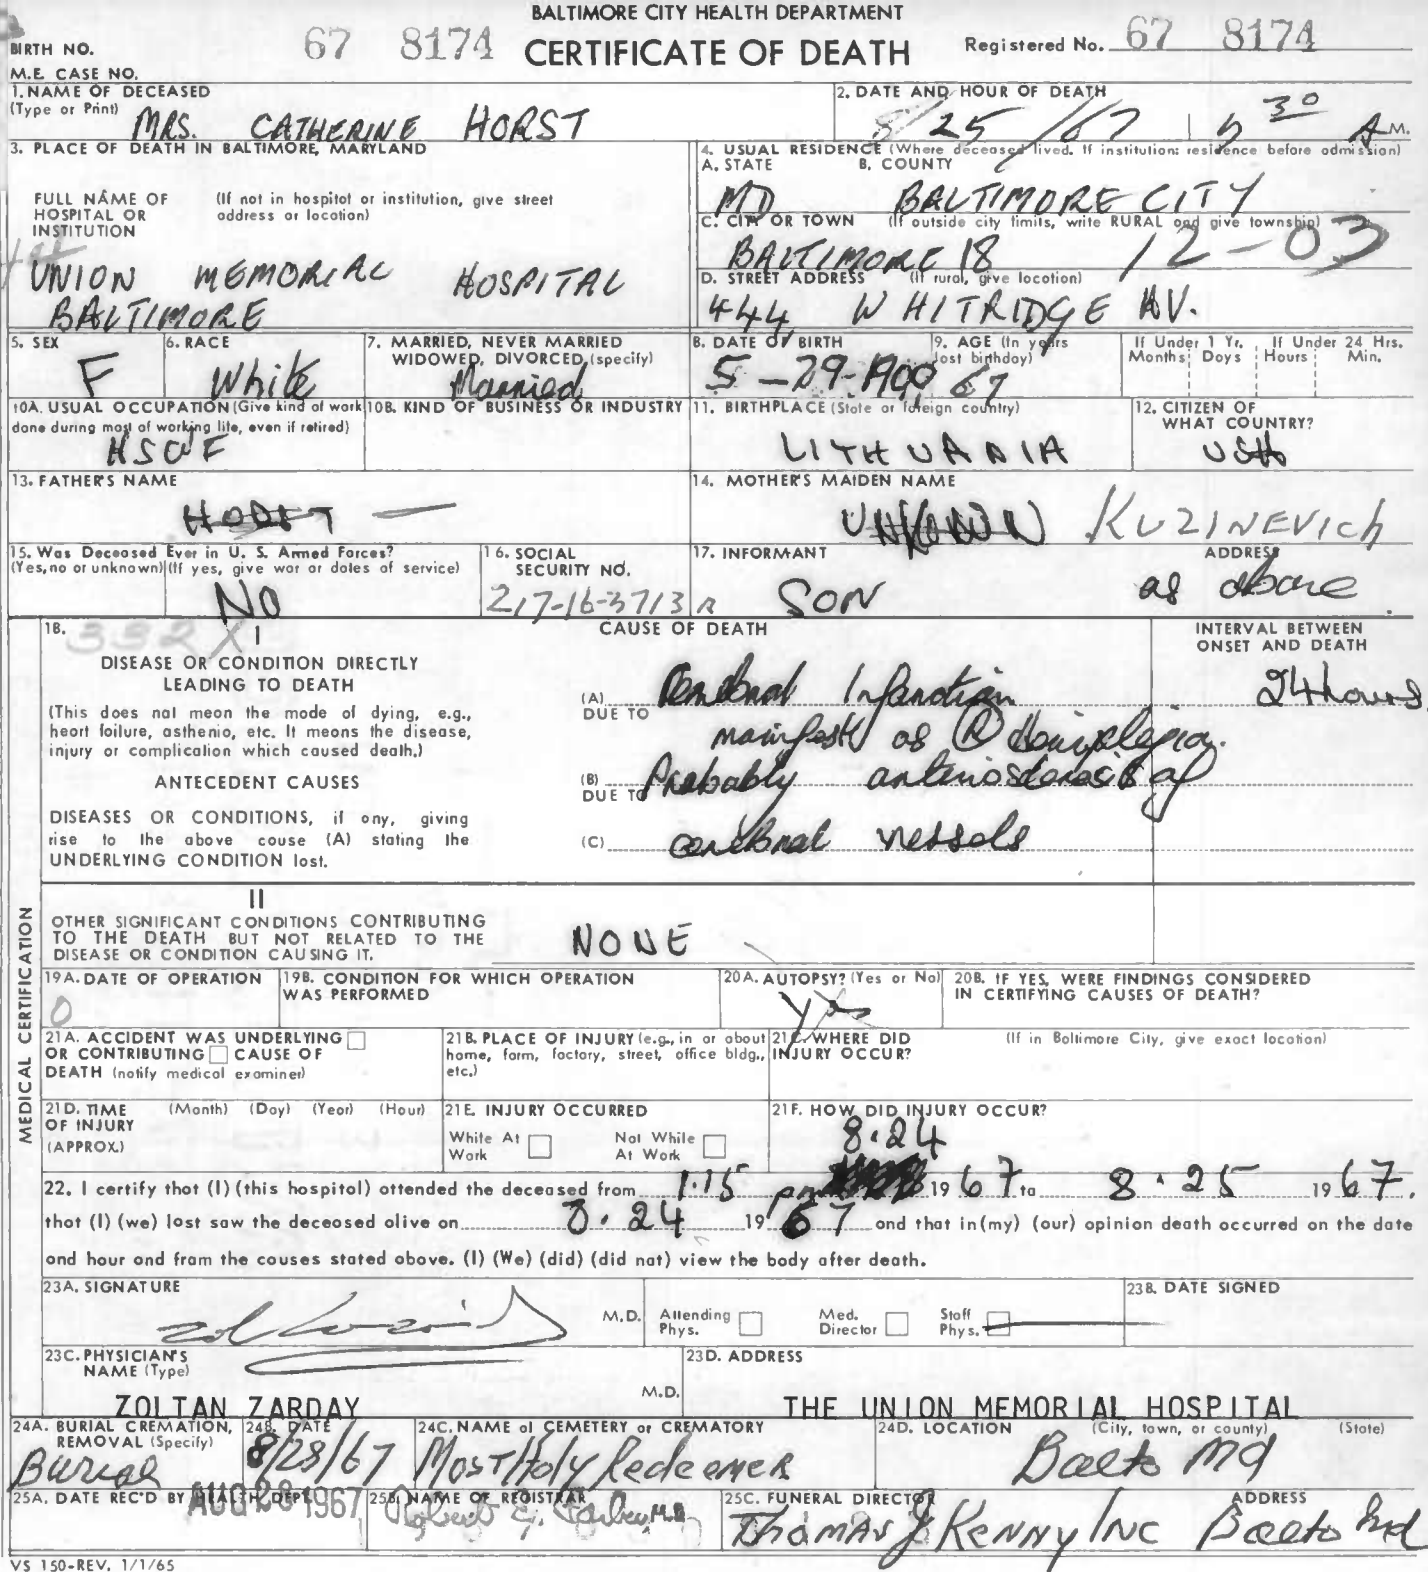 BALTIMORE CITY HEALTH DEPARTMENT
BIRTH NO. 67 8174 CERTIFICATE OF DEATH Registered No. 67 8174
M.E. CASE NO.
1. NAME OF DECEASED
(Type or Print) MRS. CATHERINE HORST
2. DATE AND HOUR OF DEATH
8/25/67 5 30 A M.
3. PLACE OF DEATH IN BALTIMORE, MARYLAND
FULL NAME OF HOSPITAL OR INSTITUTION (If not in hospital or institution, give street address or location)
UNION MEMORIAL HOSPITAL
BALTIMORE
4. USUAL RESIDENCE (Where deceased lived. If institution: residence before admission)
A. STATE B. COUNTY
MD BALTIMORE CITY
C. CITY OR TOWN (If outside city limits, write RURAL and give township)
BALTIMORE 18 12-03
D. STREET ADDRESS (If rural, give location)
444 WHITRIDGE AV.
5. SEX
F
6. RACE
White
7. MARRIED, NEVER MARRIED
WIDOWED, DIVORCED (specify)
Married
8. DATE OF BIRTH
5-29-1900
9. AGE (In years
last birthday)
67
If Under 1 Yr. If Under 24 Hrs.
Months Days Hours Min.
10A. USUAL OCCUPATION (Give kind of work
done during most of working life, even if retired)
HSWF
10B. KIND OF BUSINESS OR INDUSTRY
11. BIRTHPLACE (State or foreign country)
LITHUANIA
12. CITIZEN OF
WHAT COUNTRY?
USA
13. FATHER'S NAME
HORST —
14. MOTHER'S MAIDEN NAME
UNKNOWN KUZINEVICH
15. Was Deceased Ever in U. S. Armed Forces?
(Yes, no or unknown) (If yes, give war or dates of service)
NO
16. SOCIAL
SECURITY NO.
217-16-3713
17. INFORMANT ADDRESS
SON as above
MEDICAL CERTIFICATION
18. 332X
I
DISEASE OR CONDITION DIRECTLY
LEADING TO DEATH
(This does not mean the mode of dying, e.g.,
heart failure, asthenia, etc. It means the disease,
injury or complication which caused death.)
ANTECEDENT CAUSES
DISEASES OR CONDITIONS, if any, giving
rise to the above cause (A) stating the
UNDERLYING CONDITION last.
CAUSE OF DEATH
(A) Cerebral Infarction
DUE TO manifest as R hemiplegia.
(B) Probably arteriosclerosis of
DUE TO
(C) cerebral vessels
INTERVAL BETWEEN
ONSET AND DEATH
24 hours
II
OTHER SIGNIFICANT CONDITIONS CONTRIBUTING
TO THE DEATH BUT NOT RELATED TO THE
DISEASE OR CONDITION CAUSING IT.
NONE
19A. DATE OF OPERATION
0
19B. CONDITION FOR WHICH OPERATION
WAS PERFORMED
20A. AUTOPSY? (Yes or No)
Yes
20B. IF YES, WERE FINDINGS CONSIDERED
IN CERTIFYING CAUSES OF DEATH?
21A. ACCIDENT WAS UNDERLYING
OR CONTRIBUTING CAUSE OF
DEATH (notify medical examiner)
21B. PLACE OF INJURY (e.g., in or about
home, farm, factory, street, office bldg.,
etc.)
21C. WHERE DID
INJURY OCCUR?
(If in Baltimore City, give exact location)
21D. TIME (Month) (Day) (Year) (Hour)
OF INJURY
(APPROX.)
21E. INJURY OCCURRED
While At Work Not While At Work
21F. HOW DID INJURY OCCUR?
8.24
22. I certify that (I) (this hospital) attended the deceased from 1.15 pm 19 67 to 8.25 19 67,
that (I) (we) last saw the deceased alive on 8.24 19 67 and that in (my) (our) opinion death occurred on the date
and hour and from the causes stated above. (I) (We) (did) (did not) view the body after death.
23A. SIGNATURE
M.D. Attending Phys. Med. Director Staff Phys.
23B. DATE SIGNED
23C. PHYSICIAN'S
NAME (Type)
ZOLTAN ZARDAY M.D.
23D. ADDRESS
THE UNION MEMORIAL HOSPITAL
24A. BURIAL CREMATION,
REMOVAL (Specify)
Burial
24B. DATE
8/28/67
24C. NAME of CEMETERY or CREMATORY
Most Holy Redeemer
24D. LOCATION (City, town, or county) (State)
Balto Md
25A. DATE REC'D BY HEALTH DEPT.
AUG 28 1967
25B. NAME OF REGISTRAR
Robert E. Farber, M.D.
25C. FUNERAL DIRECTOR ADDRESS
Thomas J Kenny Inc Balto Md
VS 150-REV. 1/1/65